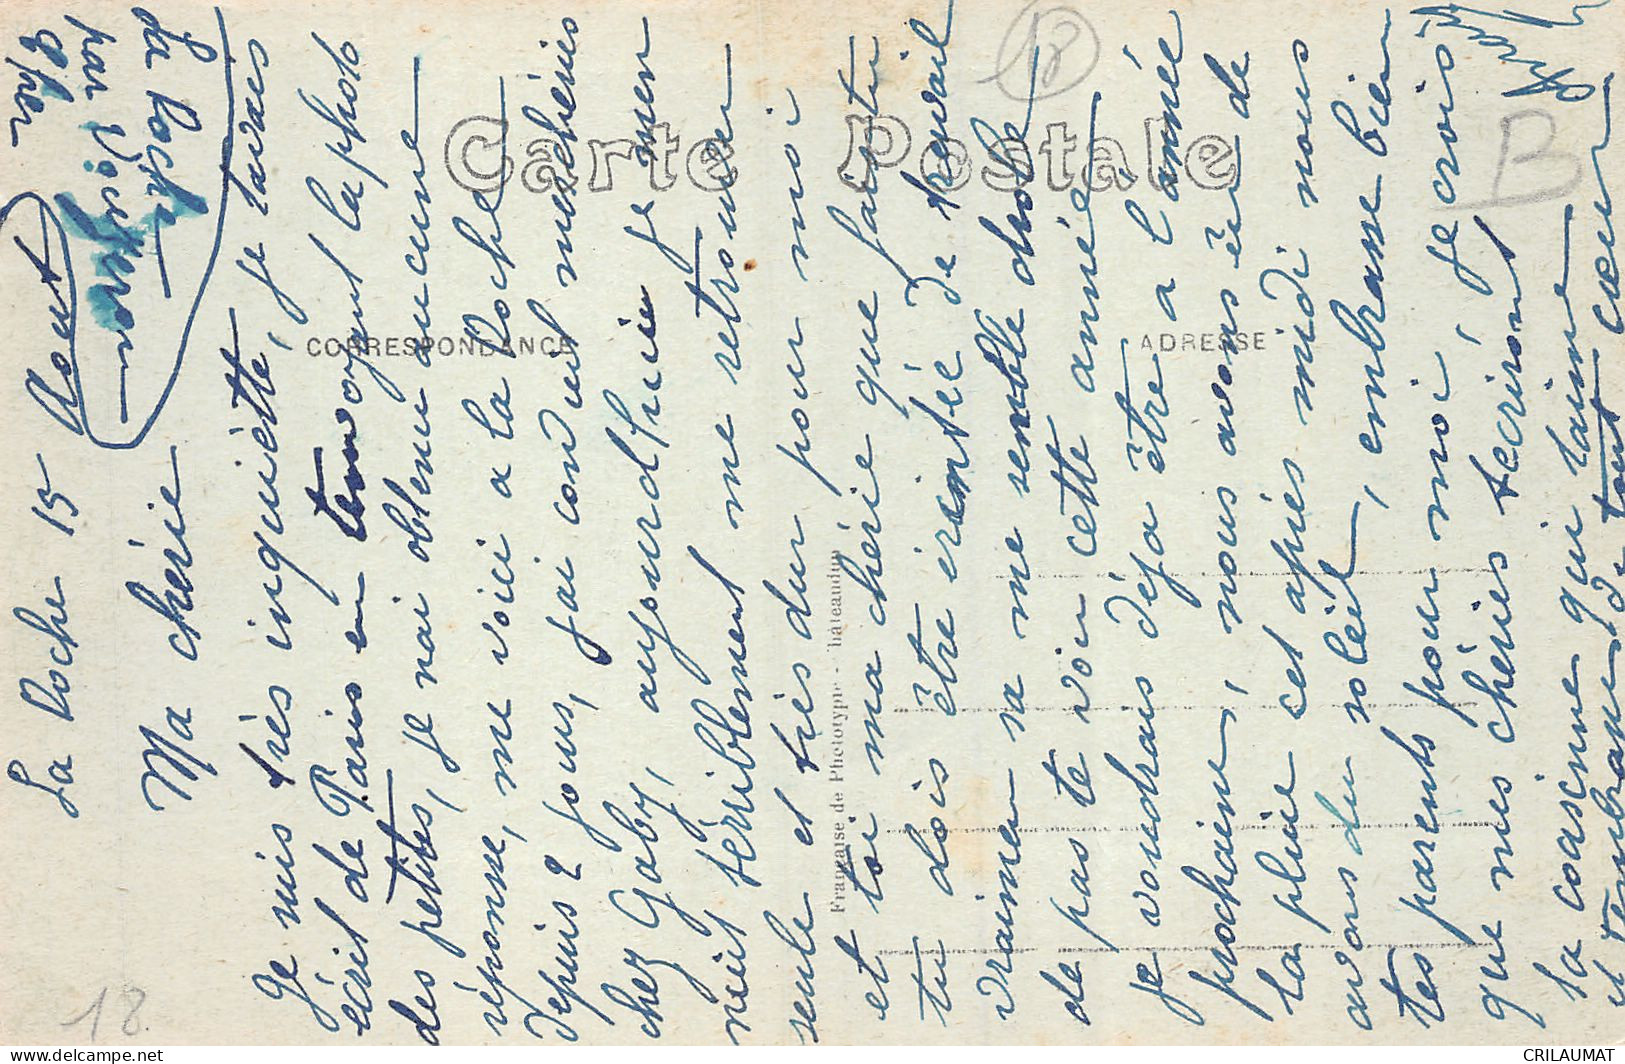 La Roche 15 Aout
La Roche
par
Cher
Ma chérie
Je suis très inquiètte, je tavais
écrit de Paris en tenvoyant la photo
des petites, je nai obtenu aucune
réponse, me voici a la Roche
depuis 2 jours, jai conduit mes chéries
chez Gaby, aujourdhuie je men
suis térriblement me retrouver
seule et très dur pour moi
et toi ma chérie que fais tu
tu dois être éreintée de travail
vraimen sa me semble drole
de pas te voir cette année
je voudrais déja être a l'année
prochaine, nous avons eu de
la pluie cet apiès midi nous
avons du soleil, embrasse bien
tes parents pour moi, je crois
que mes chéries técriront
ta cousine qui taime
et tembrasse de tout cœur
Carte Postale
CORRESPONDANCE
ADRESSE
Française de Phototypie - Châteaudun
18
18
B
CRILAUMAT